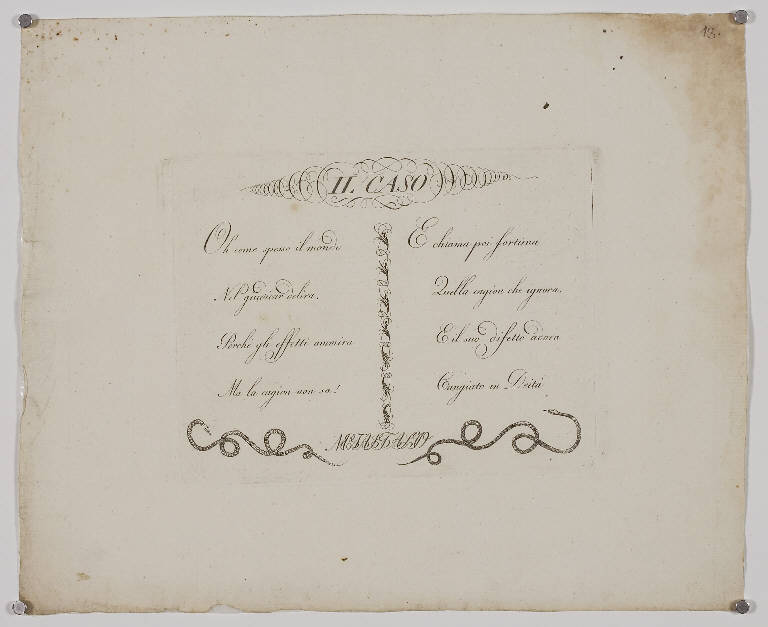 13.
IL CASO
Oh come spesso il mondo
Nel giudicar delira,
Perchè gli effetti ammira
Ma la cagion non sa!
E chiama poi fortuna
Quella cagion che ignora,
E il suo difetto adora
Cangiato in Deità
METASTASIO